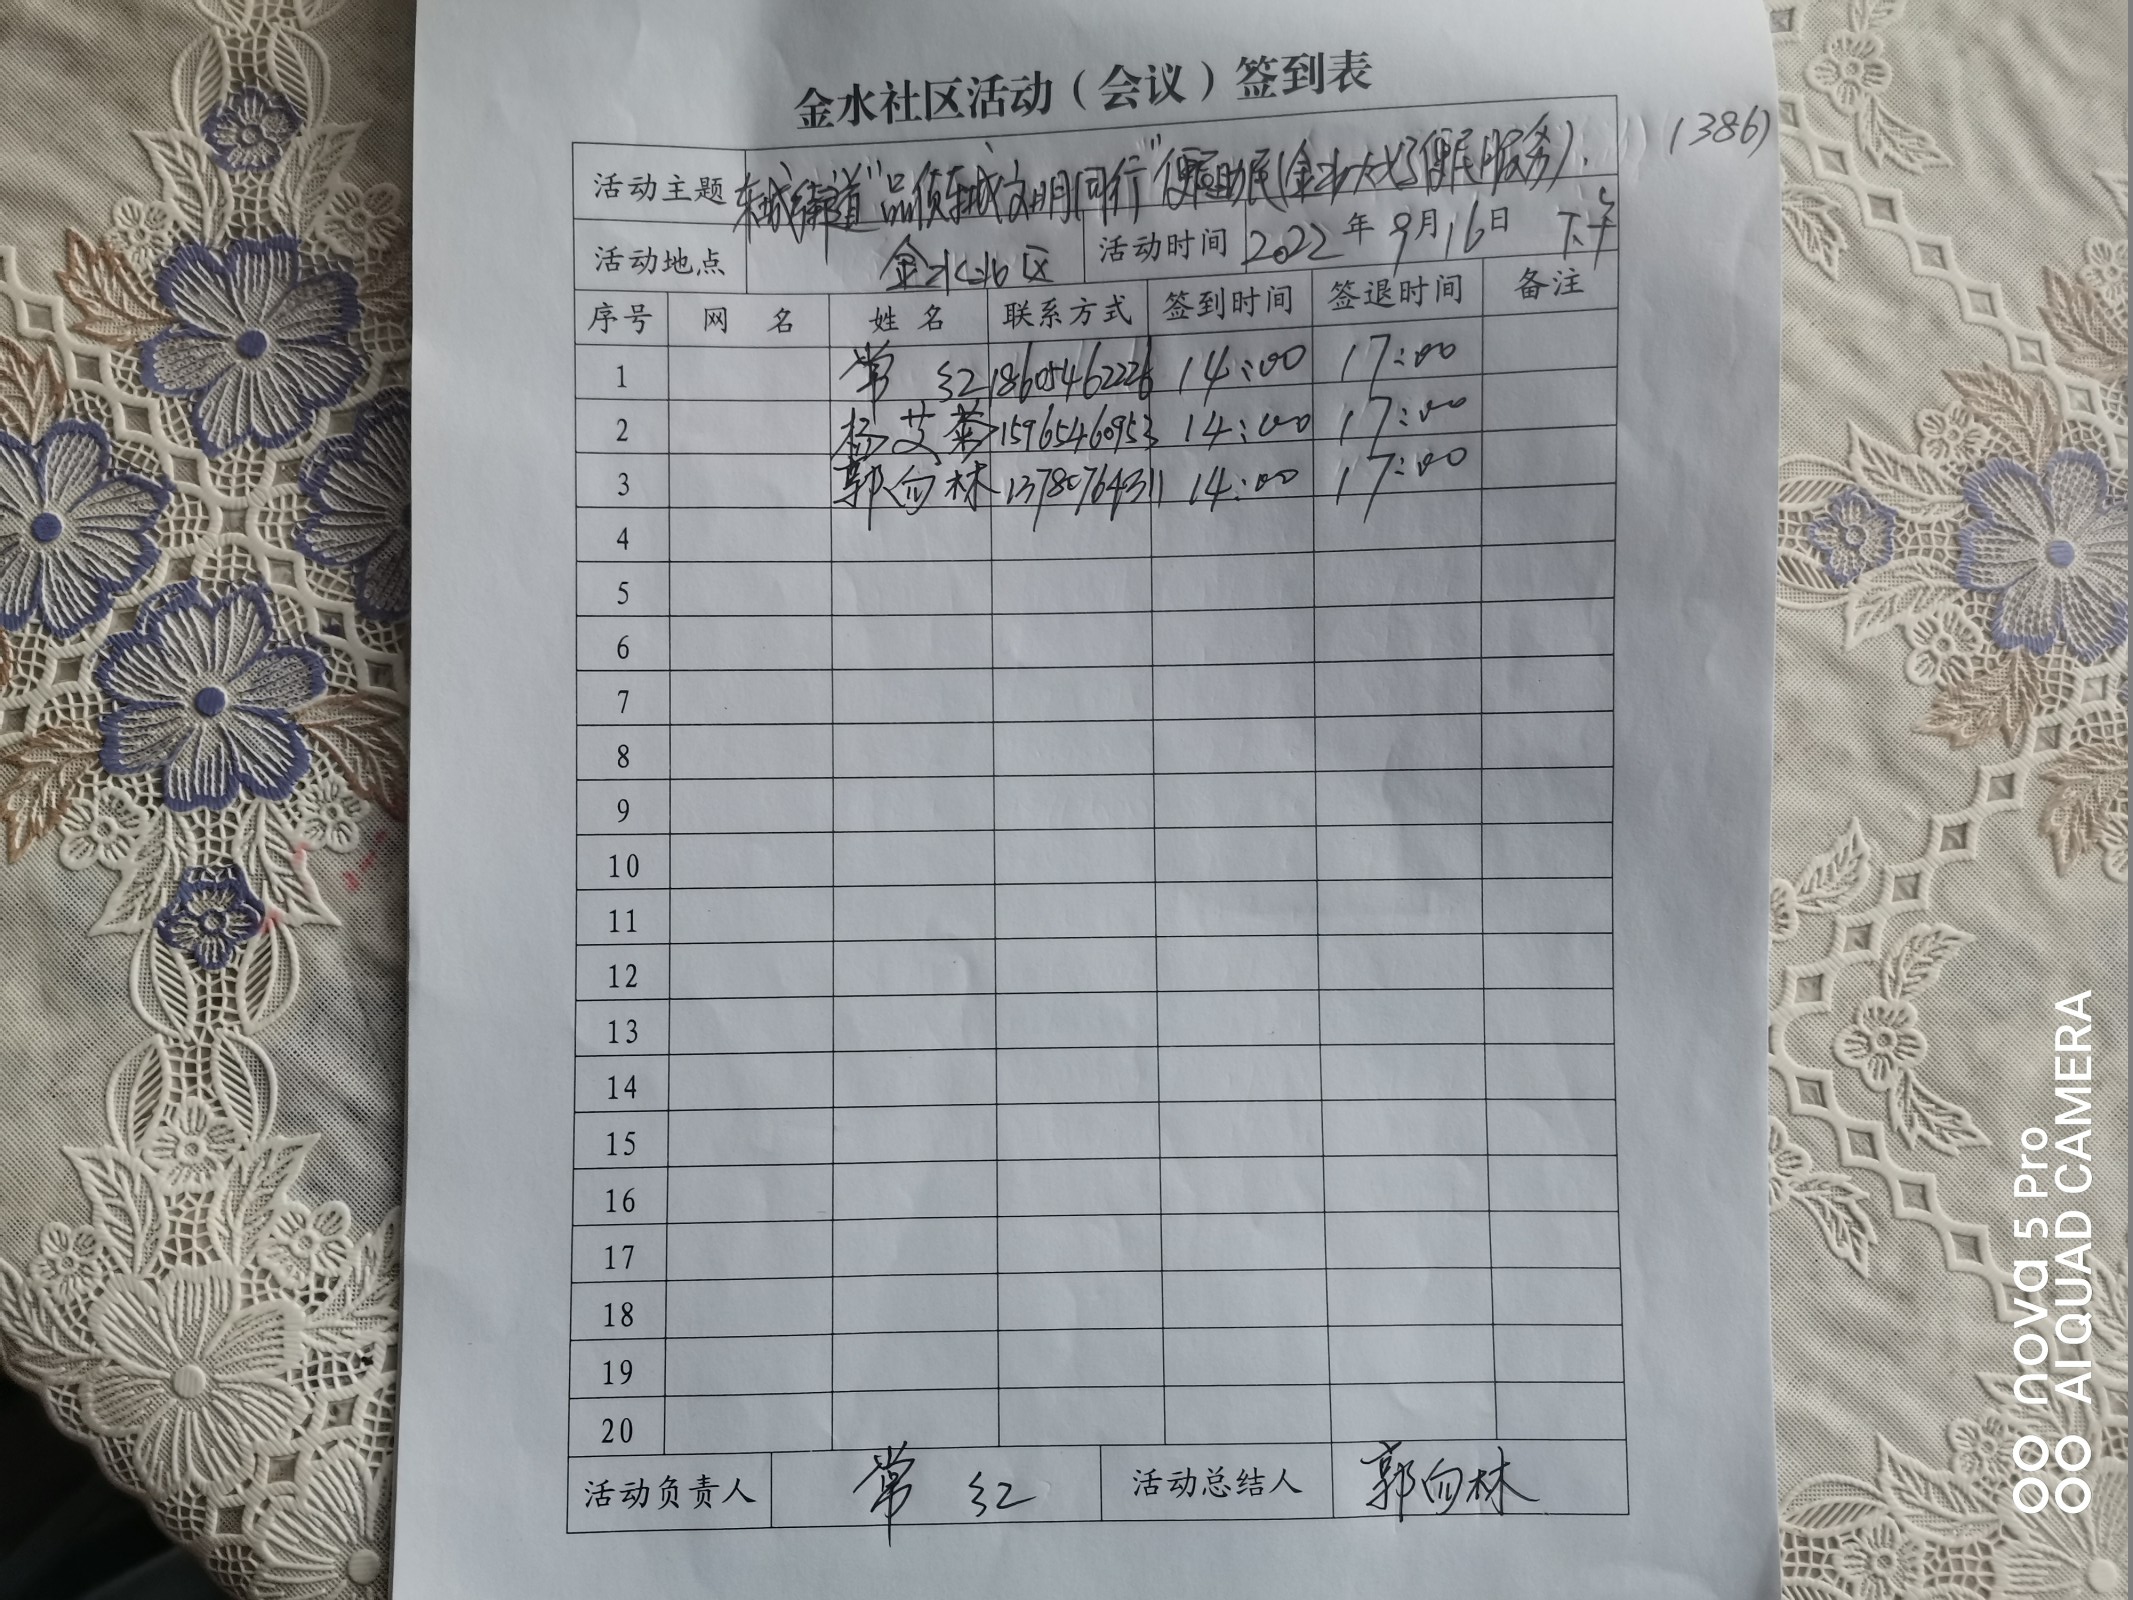 金水社区活动（会议）签到表
(386)
活动主题 东城街道"品质东城文明同行"便民助民(金水 便民服务).
活动地点 金水北区 活动时间 2022年9月16日 下午
序号 网 名 姓 名 联系方式 签到时间 签退时间 备注
1 常 红 18605462226 14:00 17:00
2 杨艾菊 15965460953 14:00 17:00
3 郭向林 13780764311 14:00 17:00
4
5
6
7
8
9
10
11
12
13
14
15
16
17
18
19
20
活动负责人 常 红 活动总结人 郭向林
nova 5 Pro
AI QUAD CAMERA